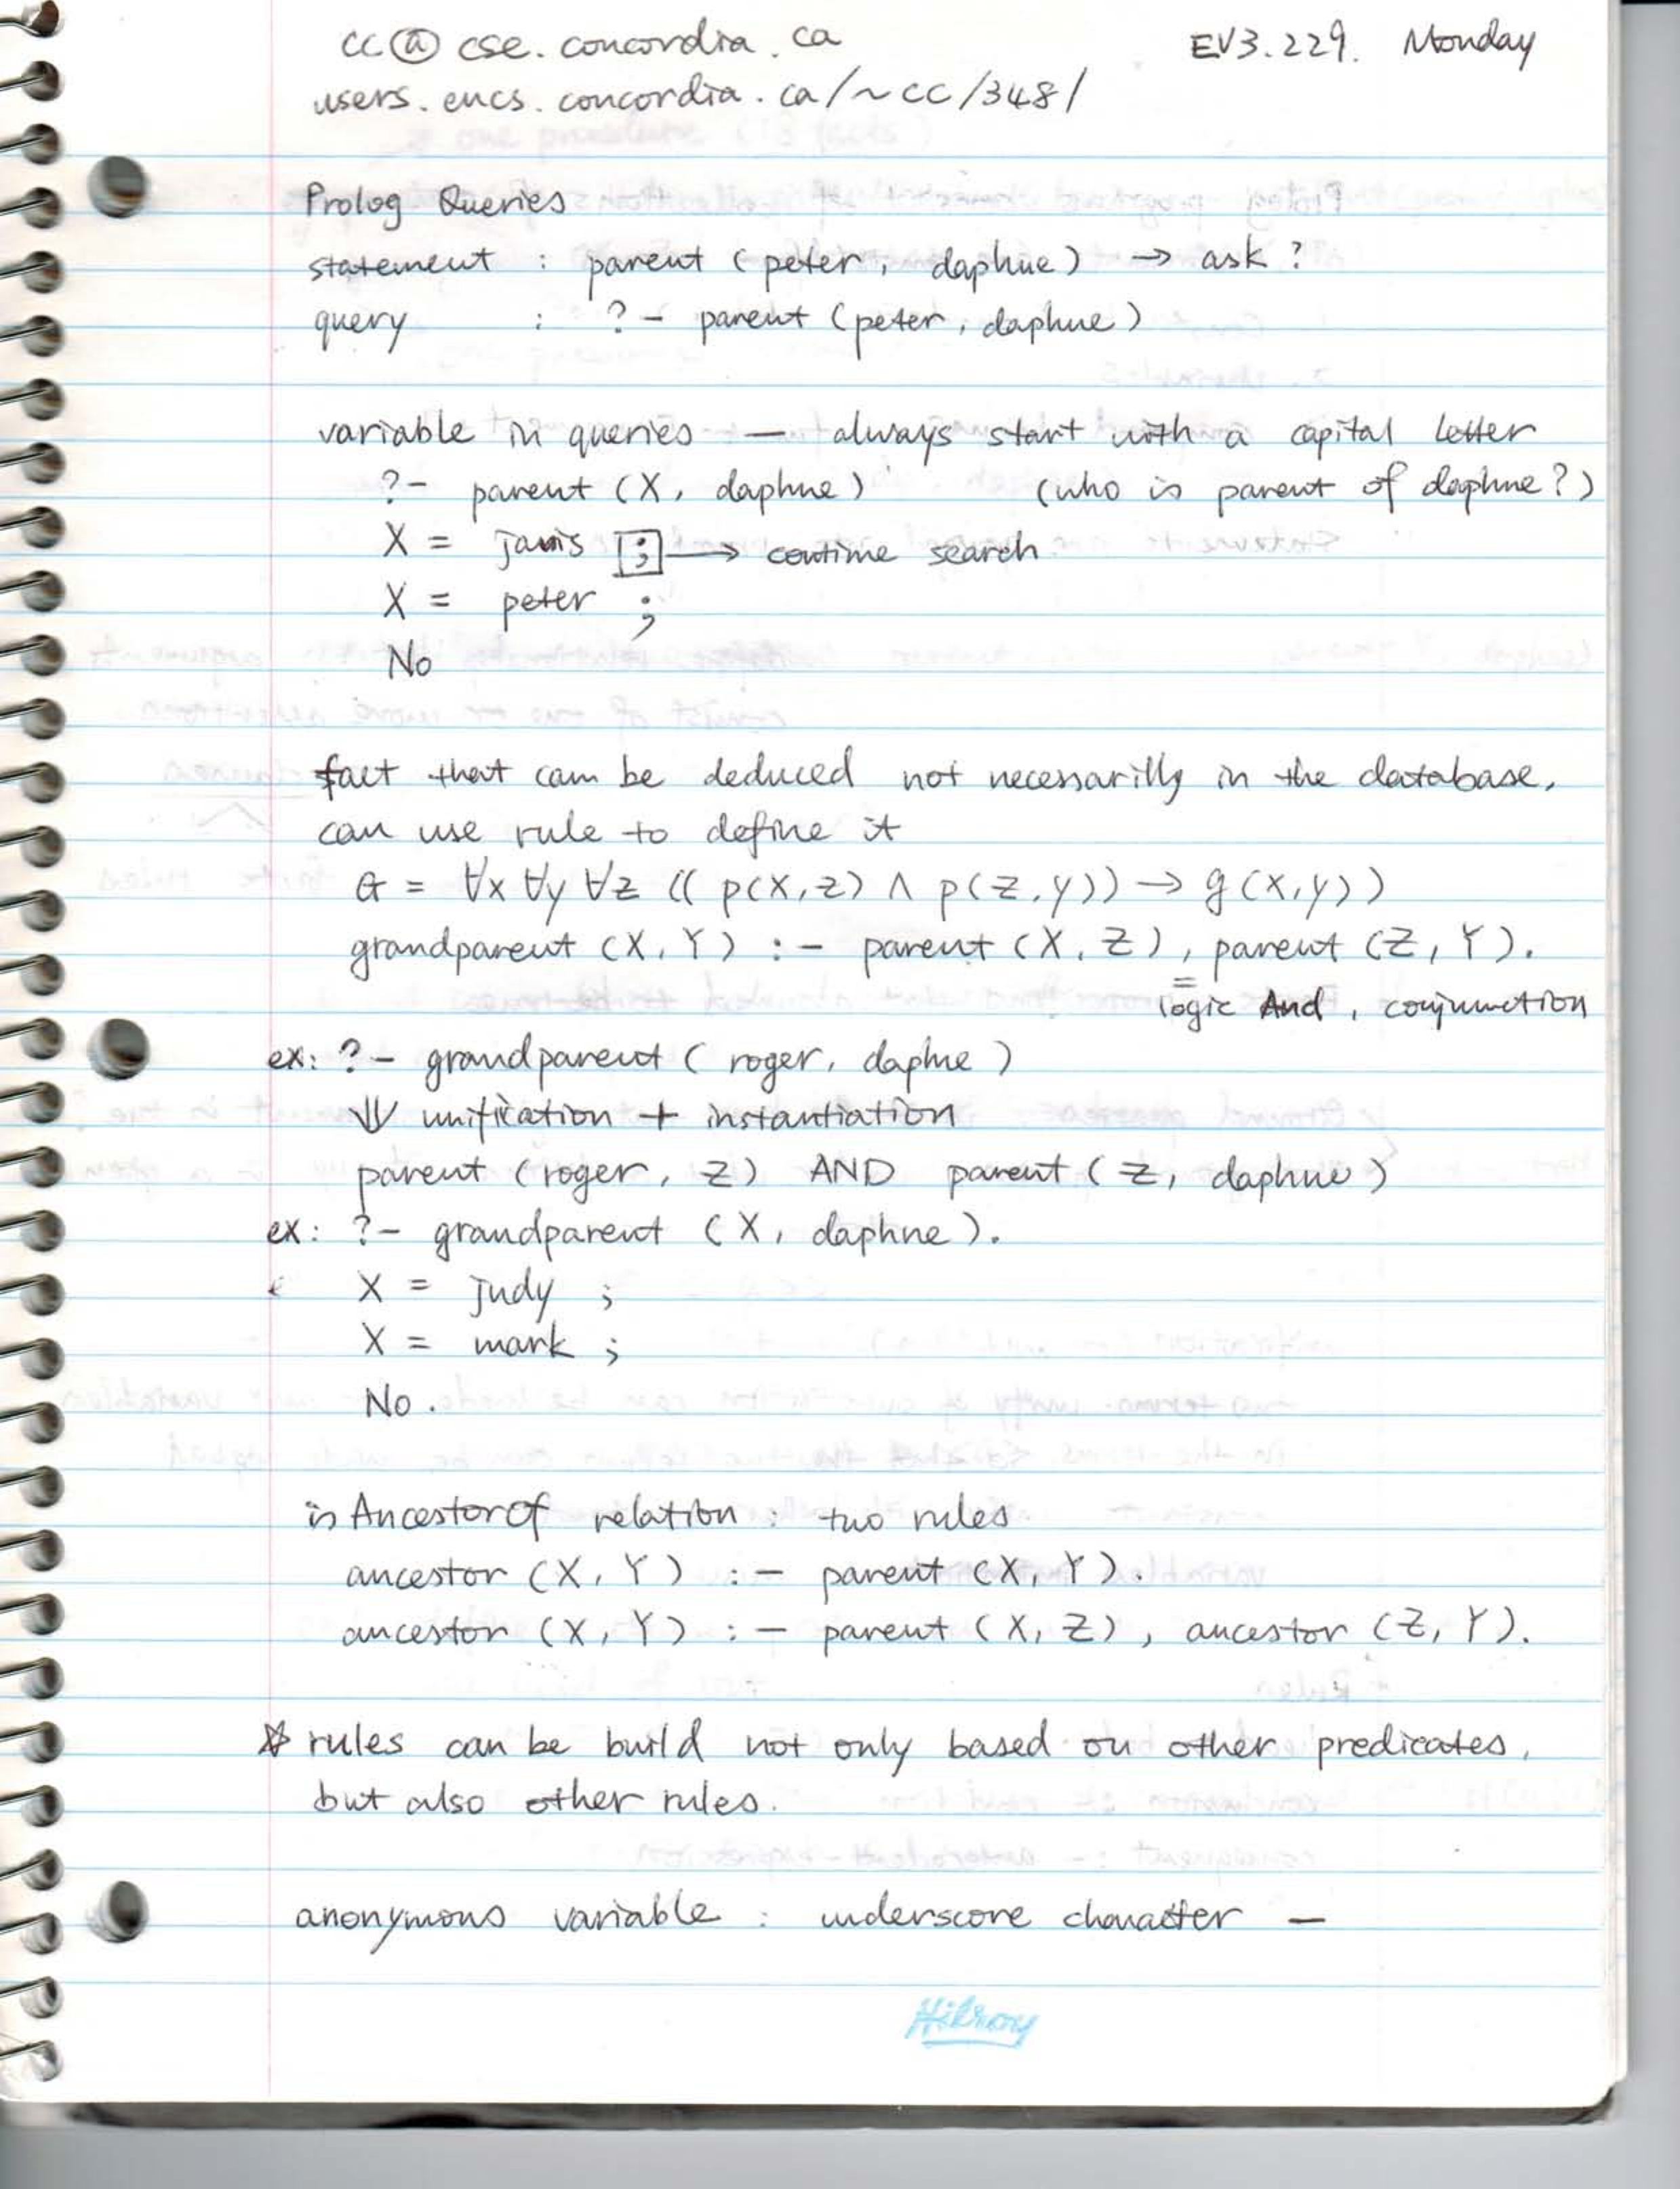 cc@cse.concordia.ca EV3.229. Monday
users.encs.concordia.ca/~cc/348/
Prolog Queries
statement : parent (peter, daphne) → ask ?
query : ?- parent (peter, daphne)
variable in queries — always start with a capital letter
?- parent (X, daphne) (who is parent of daphne?)
X = janis ; → contime search
X = peter ;
No
fact that can be deduced not necessarilly in the database,
can use rule to define it
G = ∀x ∀y ∀z (( p(X,z) ∧ p(z,y)) → g(x,y))
grandparent (X, Y) :- parent (X, Z), parent (Z, Y).
= logic And, conjunction
ex: ?- grandparent (roger, daphne)
⇓ unification + instantiation
parent (roger, Z) AND parent (Z, daphne)
ex: ?- grandparent (X, daphne).
X = judy ;
X = mark ;
No.
is AncestorOf relation : two rules
ancestor (X, Y) :- parent (X, Y).
ancestor (X, Y) :- parent (X, Z), ancestor (Z, Y).
☆ rules can be build not only based on other predicates,
but also other rules.
anonymous variable : underscore character _
Hilroy